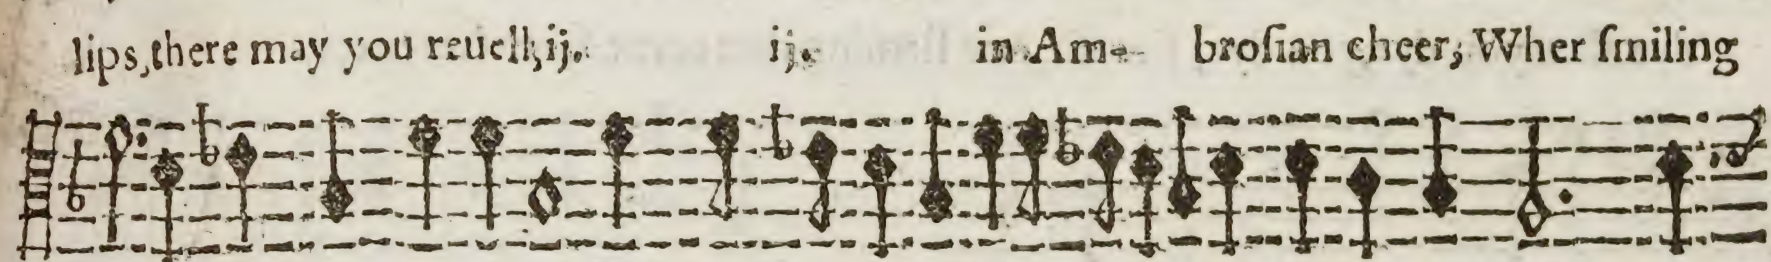 lips, there may you reuell, ij. ij. in Am- broſian cheer, Wher ſmiling